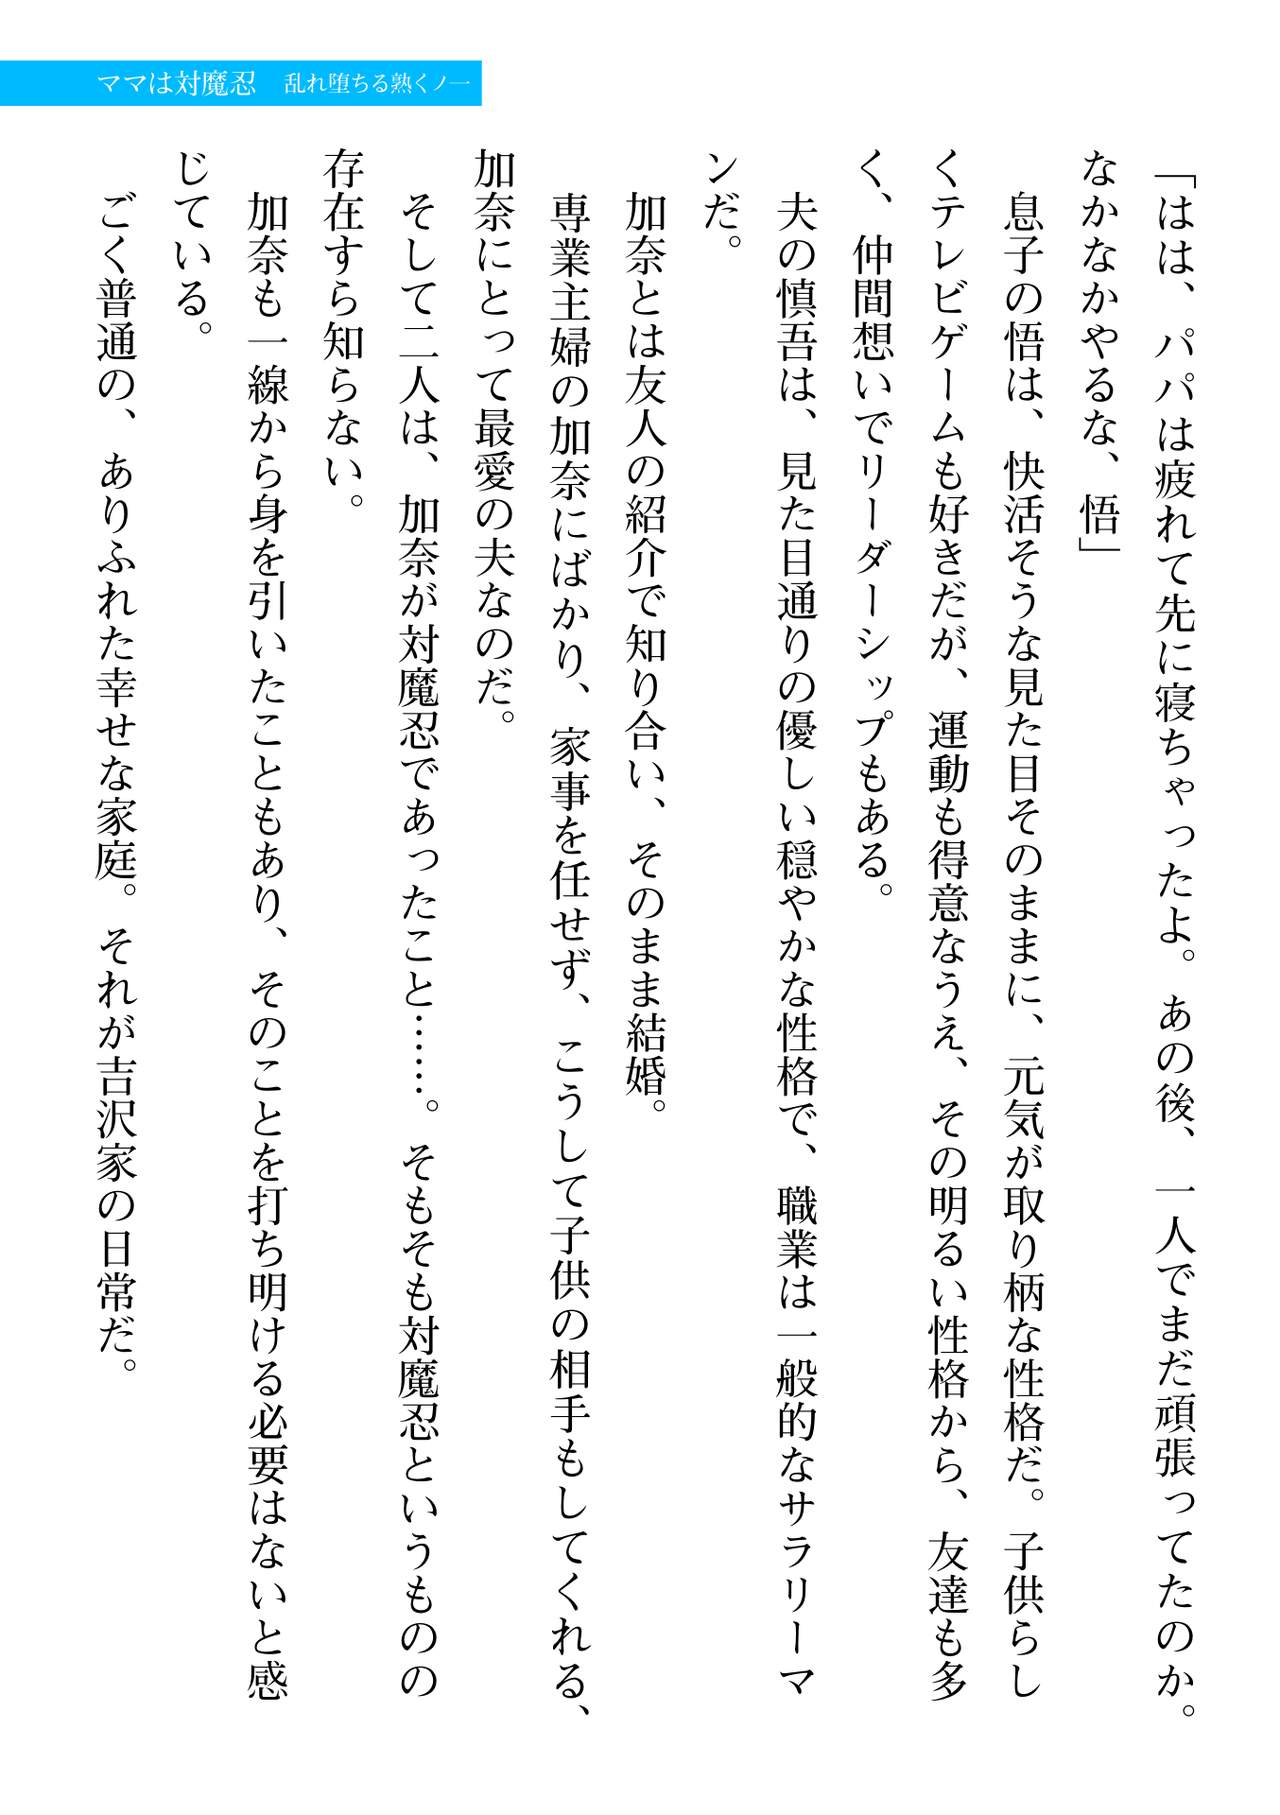 ママは対魔忍　乱れ堕ちる熟くノ一
「はは、パパは疲れて先に寝ちゃったよ。あの後、一人でまだ頑張ってたのか。
なかなかやるな、悟」
　息子の悟は、快活そうな見た目そのままに、元気が取り柄な性格だ。子供らし
くテレビゲームも好きだが、運動も得意なうえ、その明るい性格から、友達も多
く、仲間想いでリーダーシップもある。
　夫の慎吾は、見た目通りの優しい穏やかな性格で、職業は一般的なサラリーマ
ンだ。
　加奈とは友人の紹介で知り合い、そのまま結婚。
　専業主婦の加奈にばかり、家事を任せず、こうして子供の相手もしてくれる、
加奈にとって最愛の夫なのだ。
　そして二人は、加奈が対魔忍であったこと……。そもそも対魔忍というものの
存在すら知らない。
　加奈も一線から身を引いたこともあり、そのことを打ち明ける必要はないと感
じている。
　ごく普通の、ありふれた幸せな家庭。それが吉沢家の日常だ。